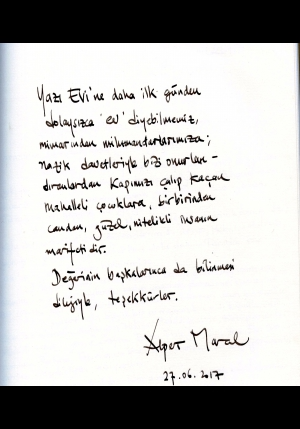 Yazı Evi'ne daha ilk günden
dolaysızca 'ev' diyebilmemiz,
mimarından mihmandarlarımıza;
nazik davetleriyle bizi onurlan-
dıranlardan kapımızı çalıp kaçan
mahalleli çocuklara, birbirinden
candan, güzel, nitelikli insanın
marifetidir.
Değerinin başkalarınca da bilinmesi
dileğiyle, teşekkürler.
Alper Maral
27.06.2017